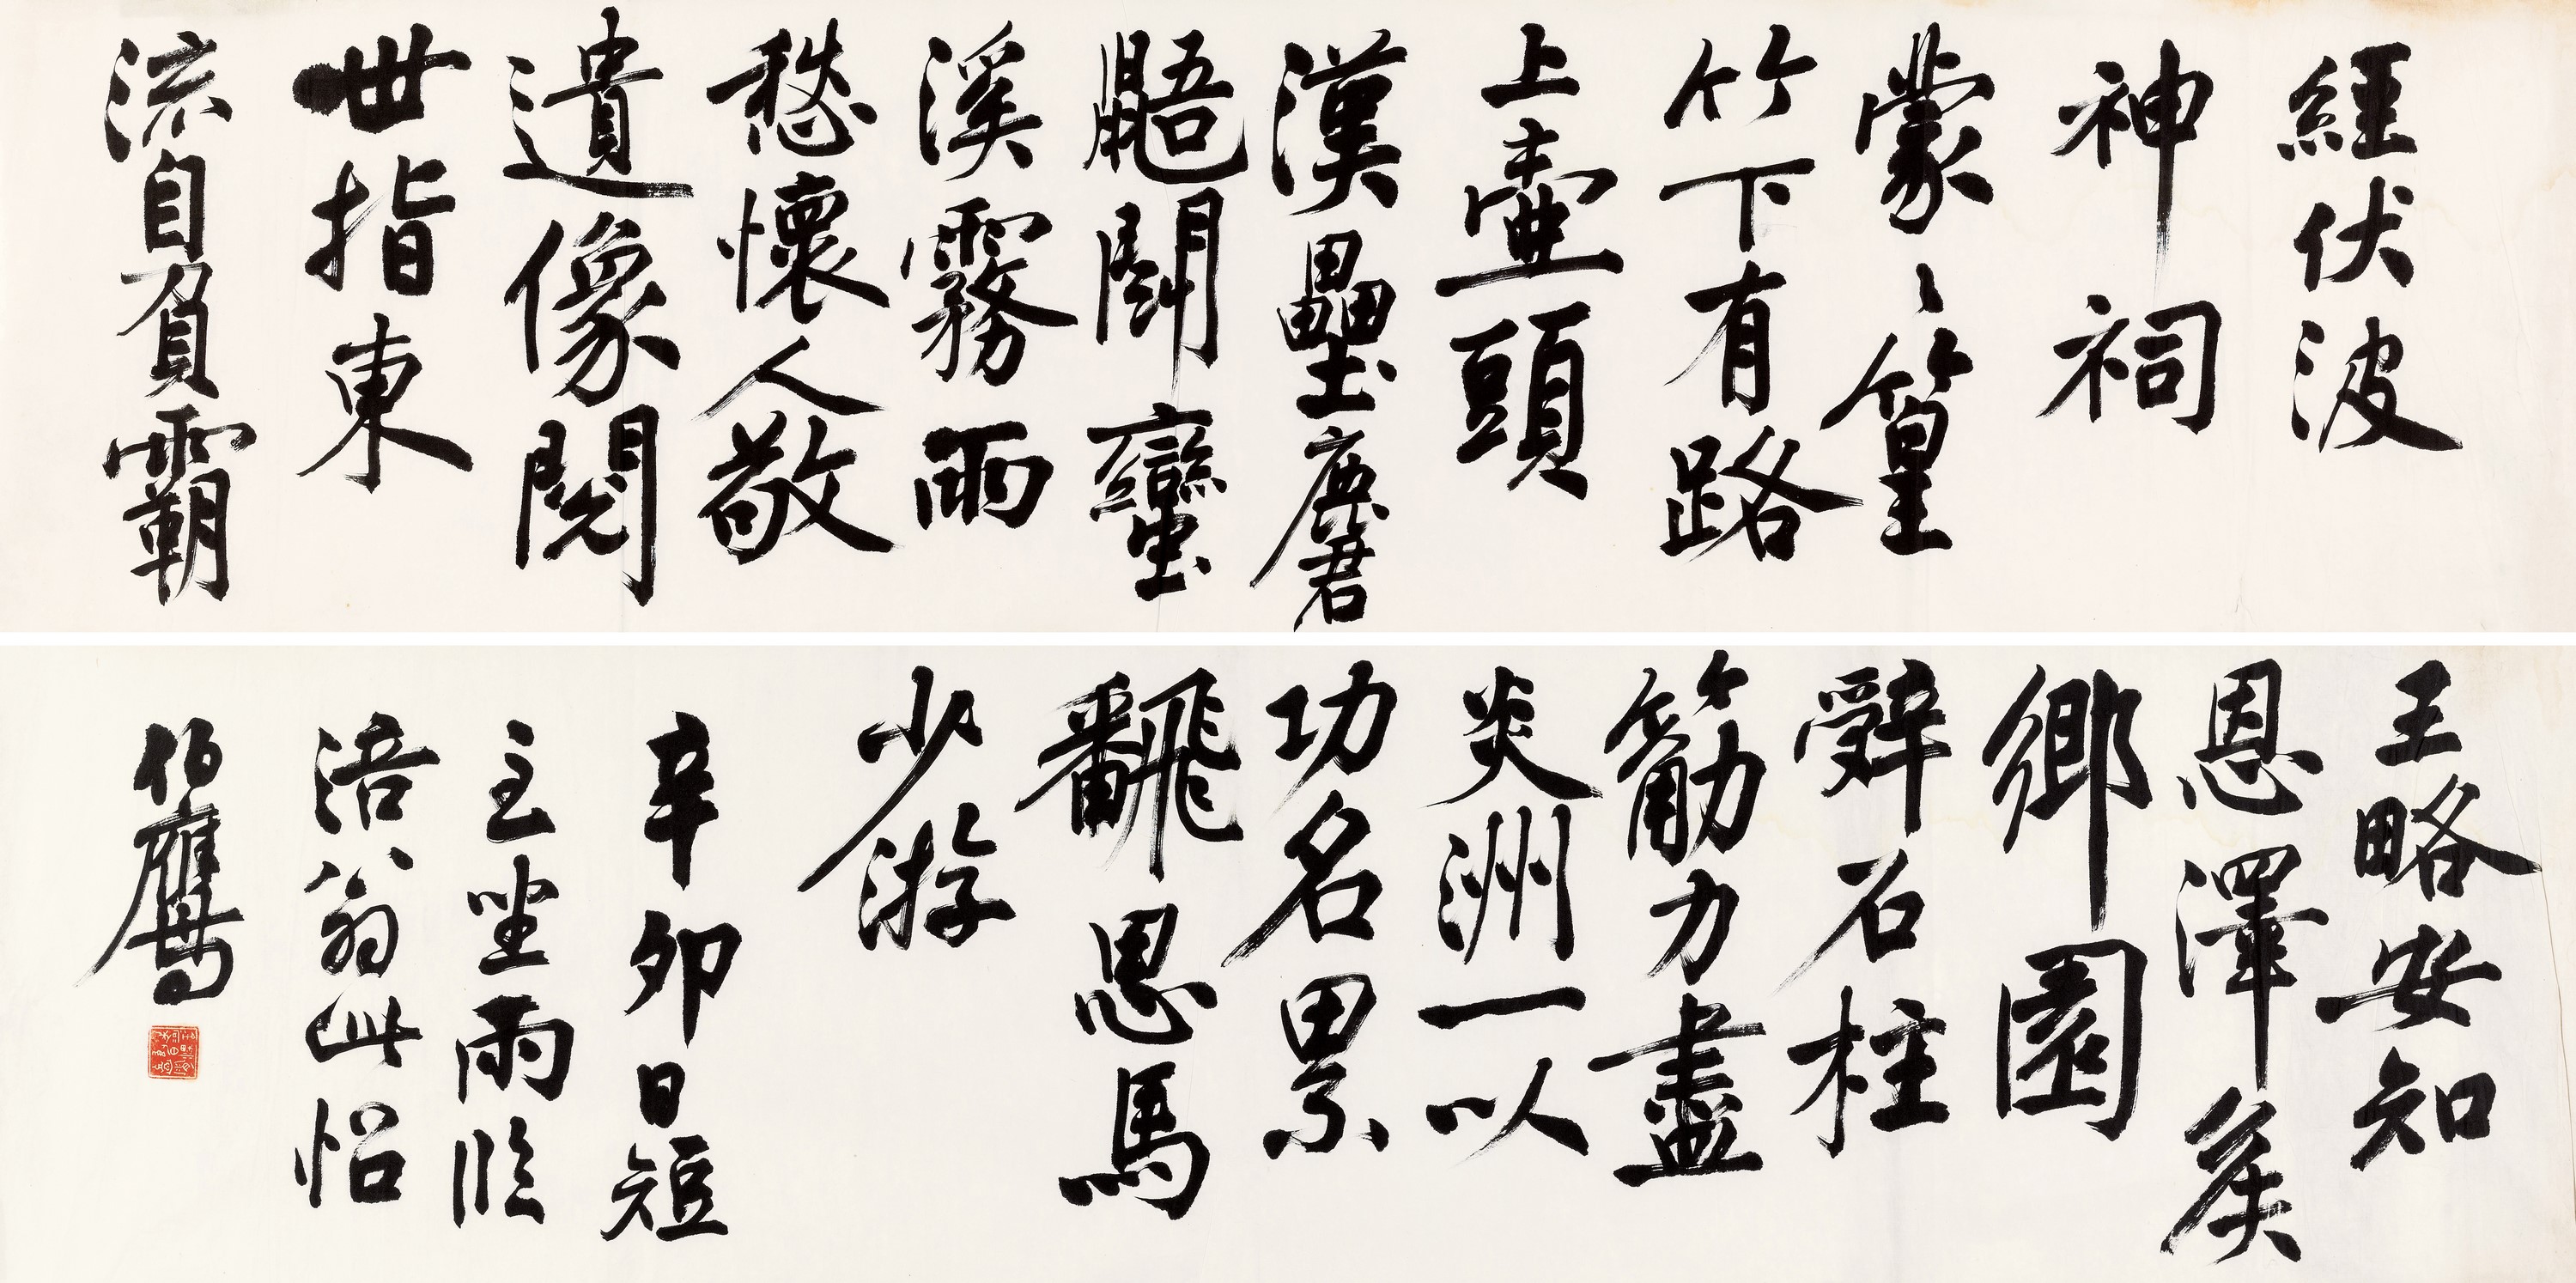 經伏波
神祠
蒙〻篁
竹下有路
上壷頭
漢壘麏
鼯鬬蠻
溪霧雨
愁懷人敬
遺像閱
世指東
流自負霸
王略安知
恩澤矦
鄉園
辤石柱
筋力盡
炎洲一以
功名累
飜思馬
少游
辛卯日短
至坐雨臨
涪翁此
伯鷹